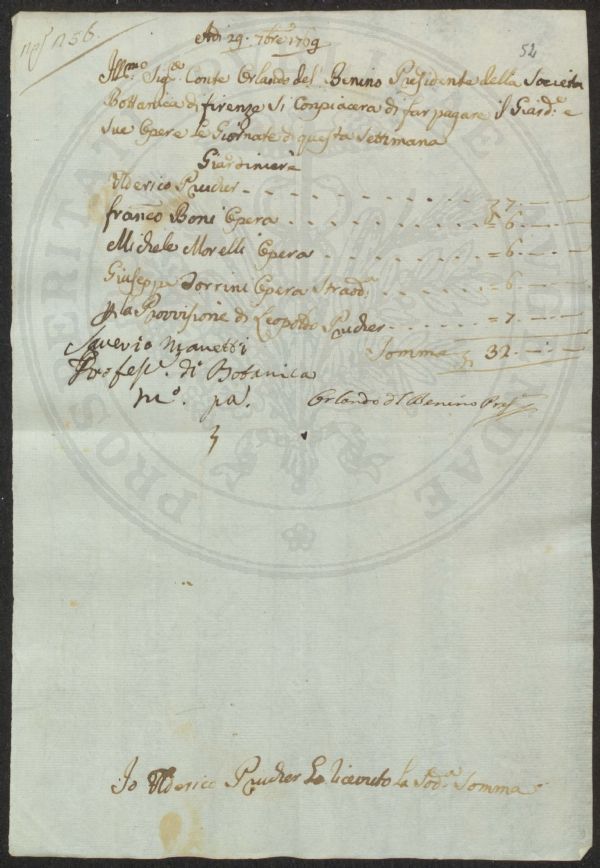 N° 156.
Adi 29. 7bre 1769
52
Ill.mo Sig.e Conte Orlando del Benino Presidente della Società
Bottanica di firenze Si Conpiacera di far pagare il Giard.e e
sue Opere le Giornate di questa Settimana
Giardiniere
Ulderico Prucher - - - - - - - - 7 - -
franco Boni Opera - - - - - - = 6 - -
Michele Morelli Opera - - - - - - = 6 - -
Giuseppe Torrini Opera Straord.a - - - - = 6 - -
p la Provvisione di Leopoldo Prucher - - - - = 7 - -
Saverio Manetti
Somma 32 - -
Profess.e di Botanica
m.o pa.
Orlando del Benino Pres.e
Io Ulderico Prucher ho ricevuto la Sod.a Somma
PROSPERITATI PUBLICAE AUGENDAE